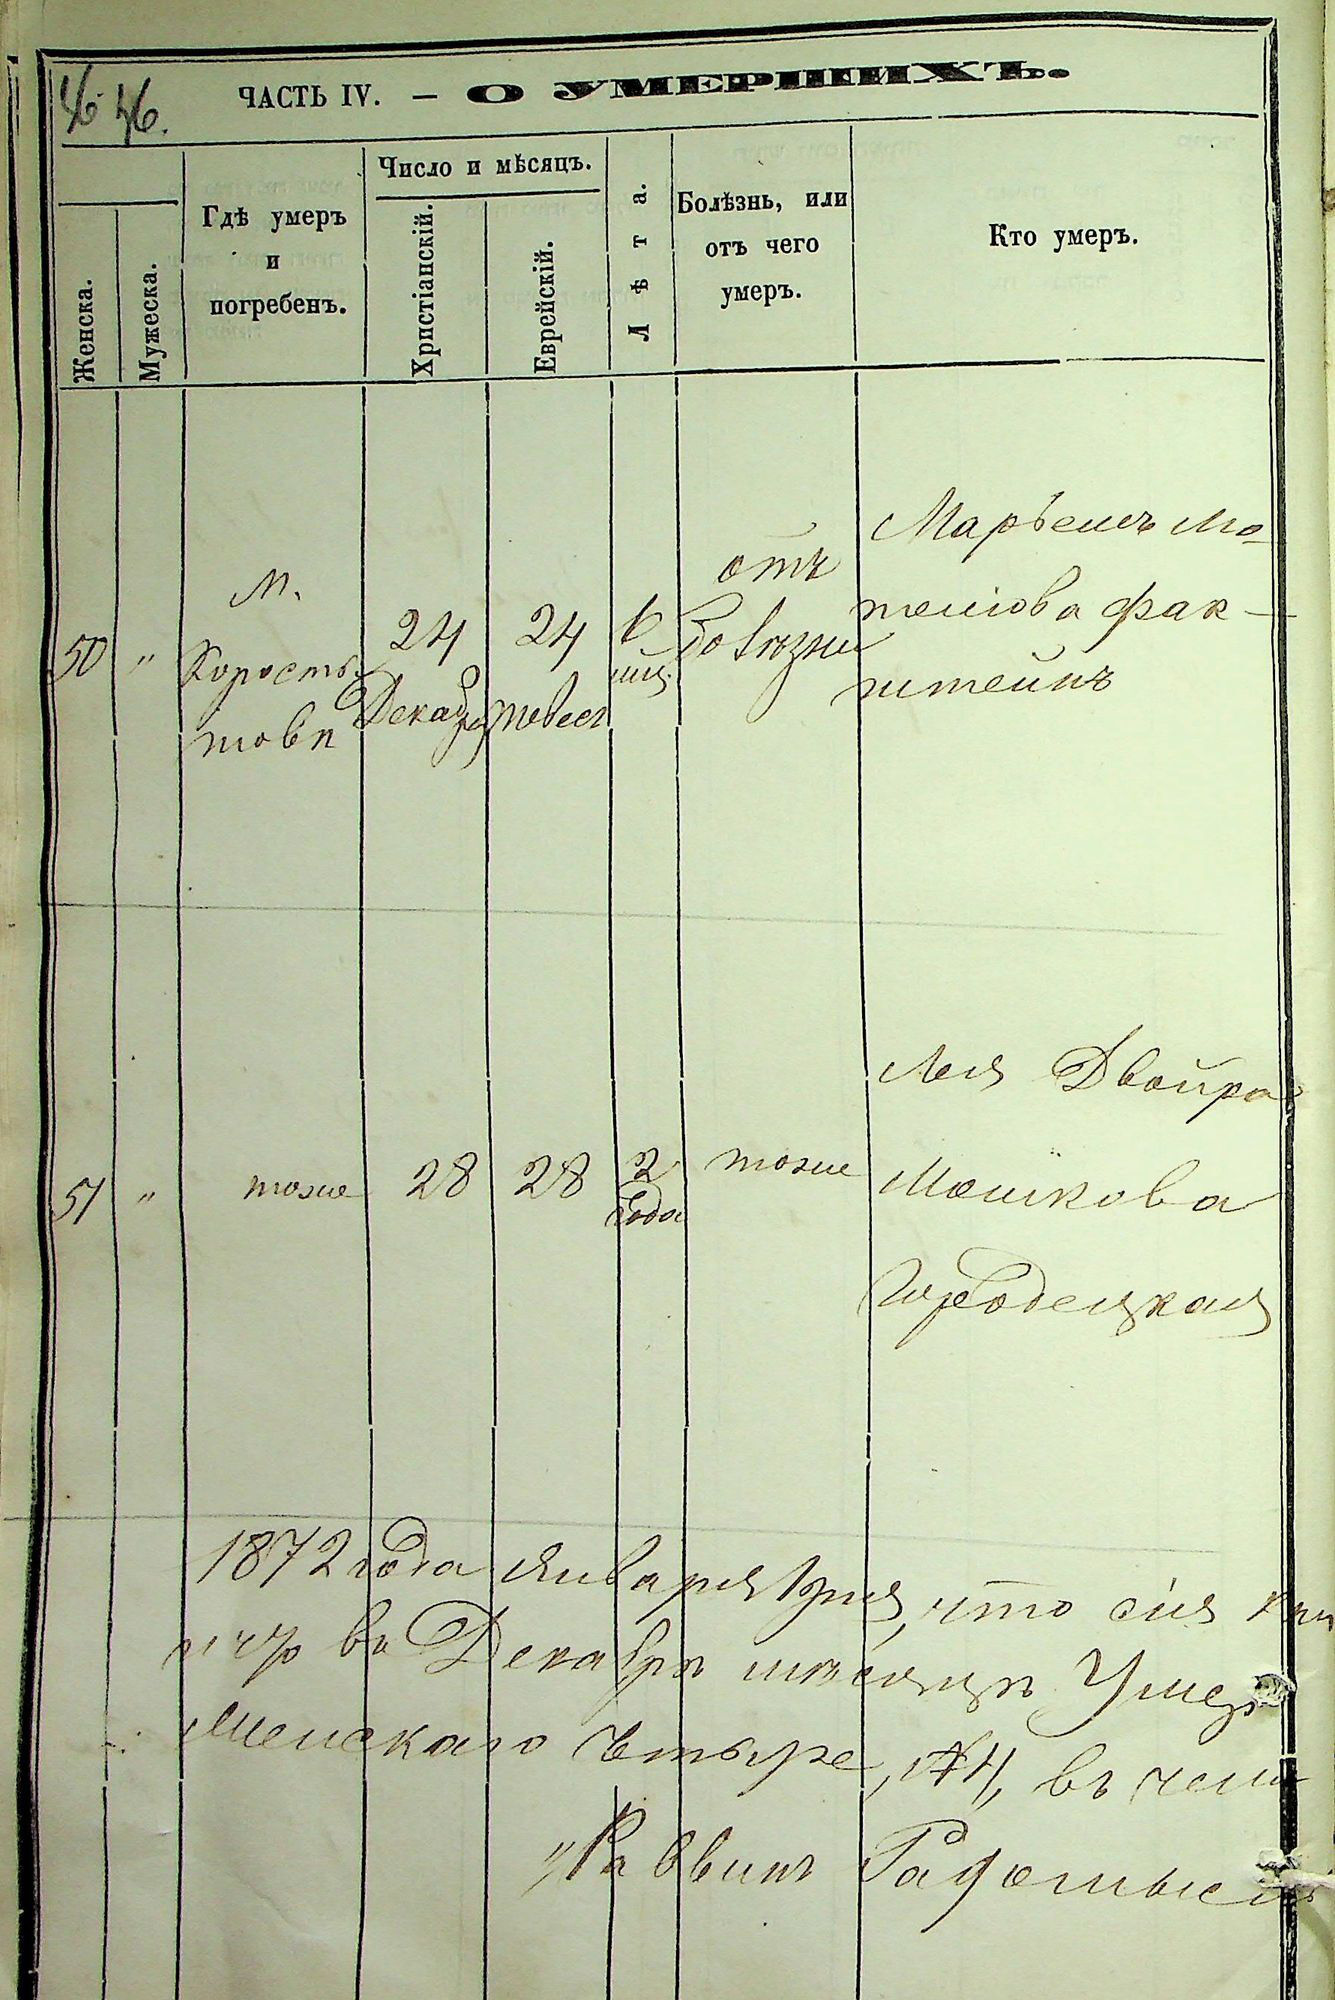 46. 46.
ЧАСТЬ IV. — О УМЕРШИХЪ.
Женска.
Мужеска.
Гдѣ умеръ
и
погребенъ.
Число и мѣсяцъ.
Христіанскій.
Еврейскій.
Лѣта.
Болѣзнь, или
отъ чего
умеръ.
Кто умеръ.
50 " м. Коросты-
шовѣ
24
Декабря
24
тевеса
6
мѣс.
отъ
болѣзни
Марьемъ Мо-
тешова Фак-
штейнъ
51 " тоже 28 28 2
года
тоже
Лея Двойра
Мошкова
Городецкая
1872 года Января дня, что сія
въ Декабрѣ мѣсяцѣ Умер
Женскаго четыре, №4, въ чемъ
Раввинъ Радомысл